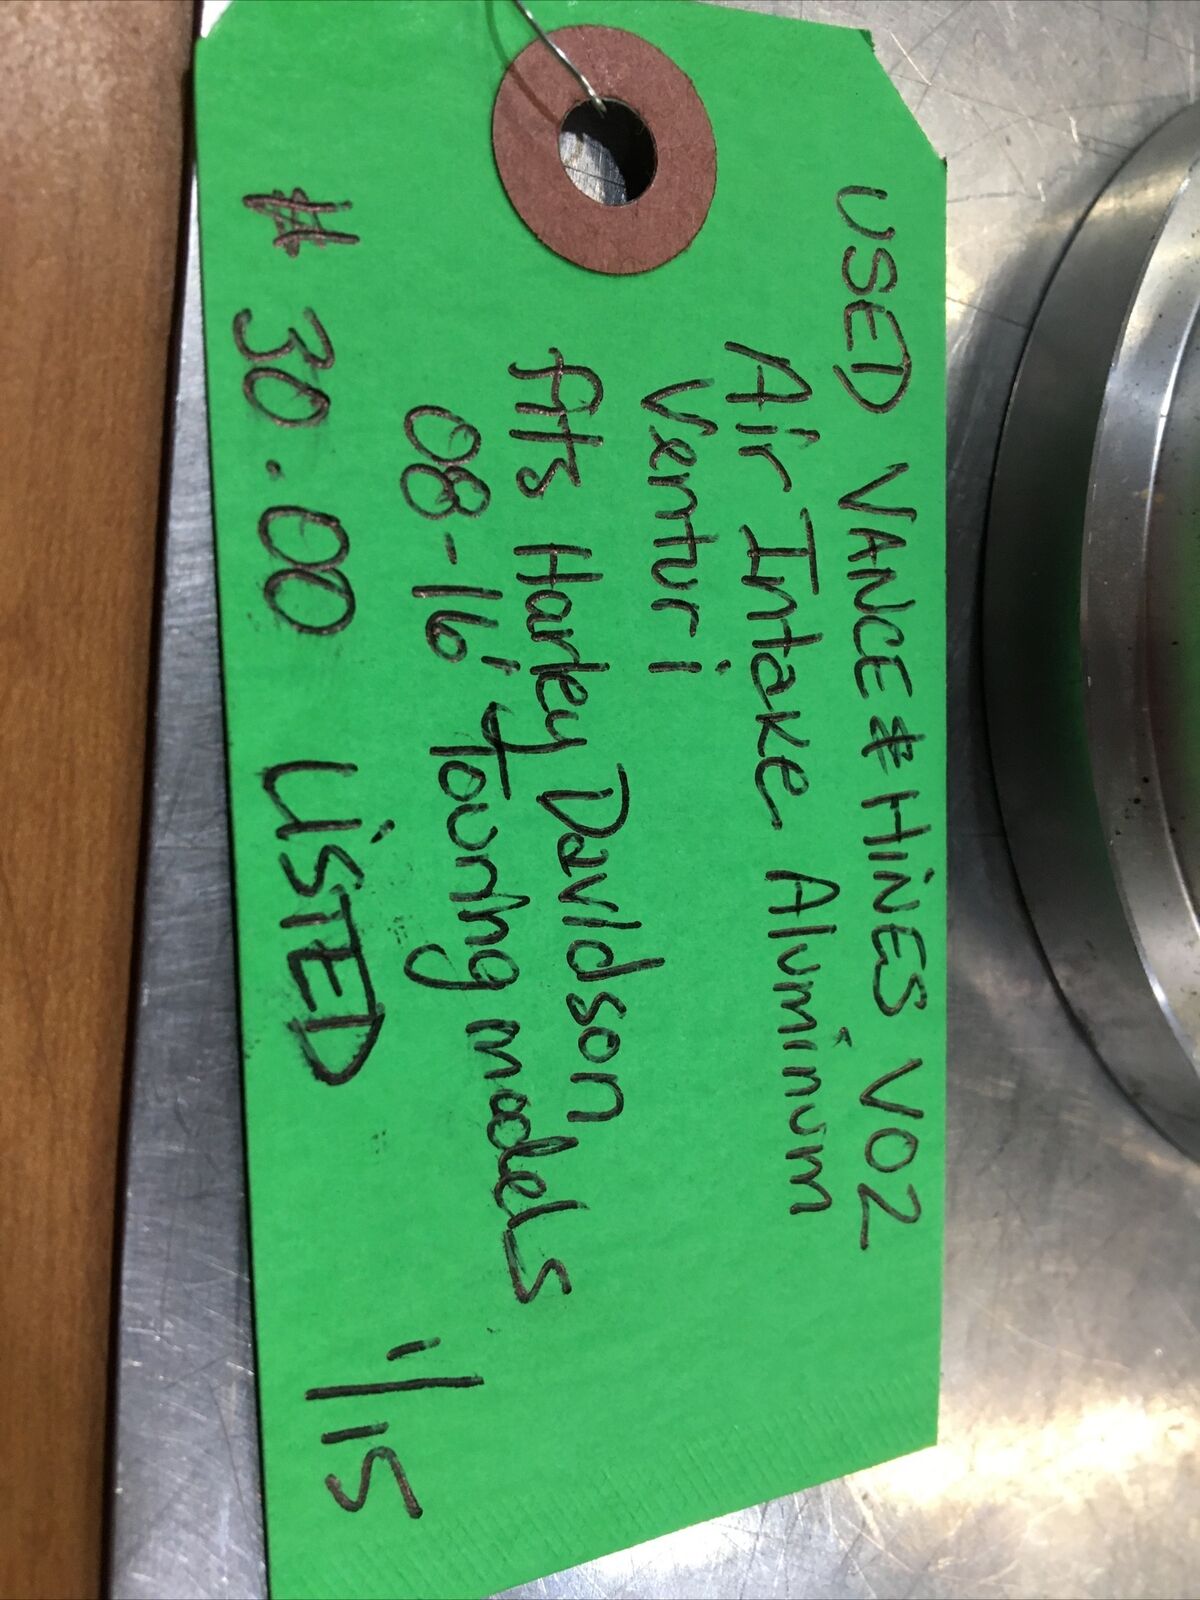 USED VANCE & HINES VO2
Air Intake Aluminum
Venturi
fits Harley Davidson
08-16' Touring models
# 30.00 LISTED 1/15